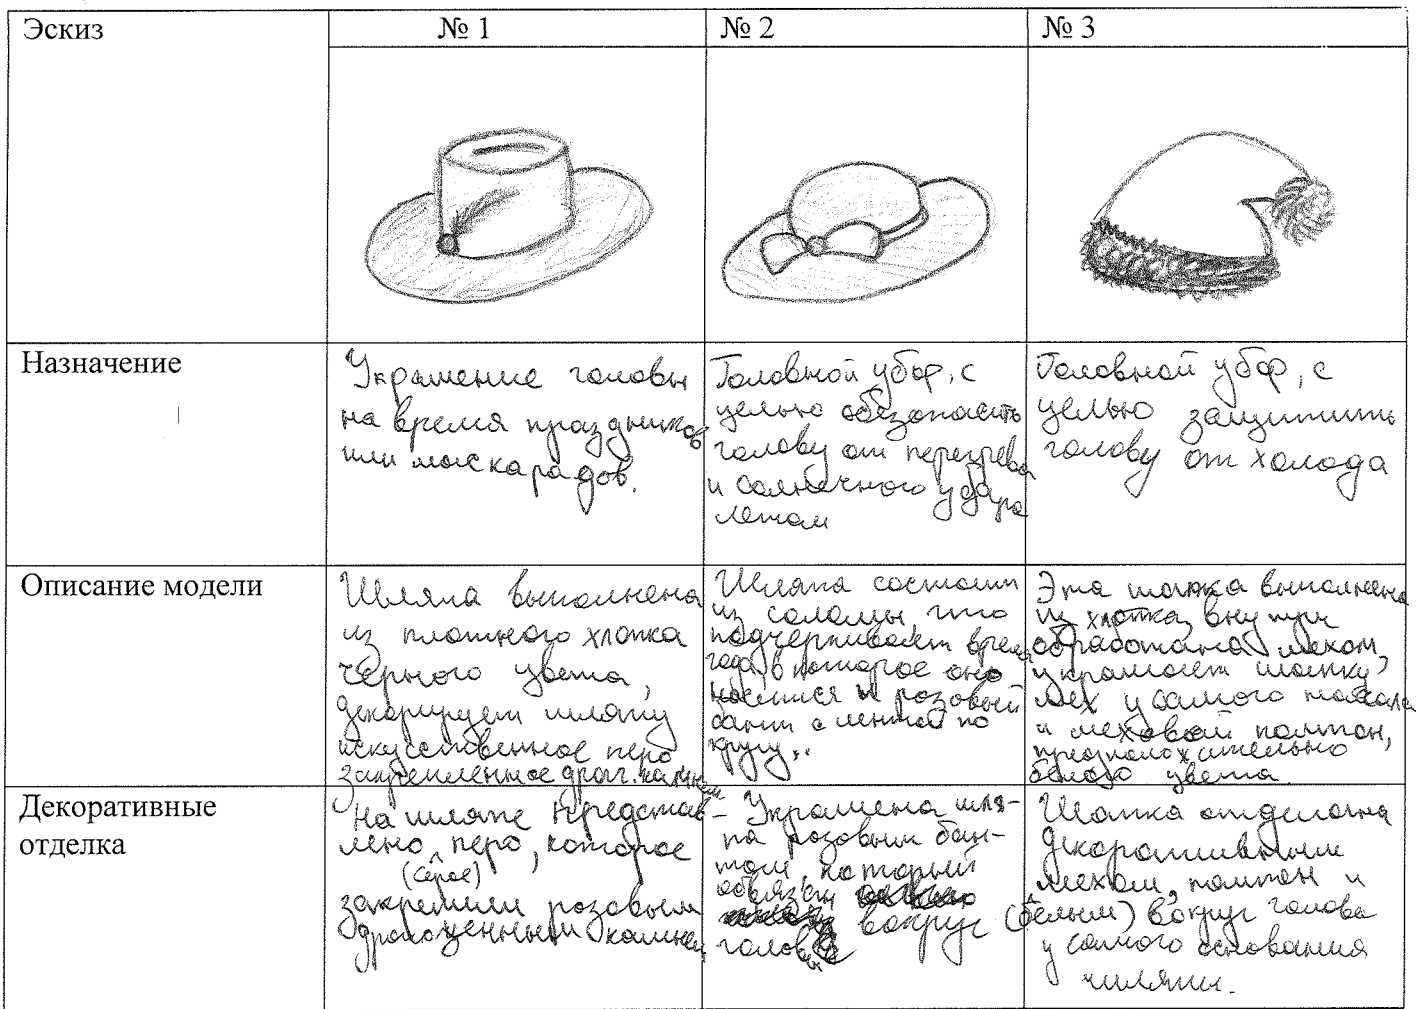 Эскиз
№ 1
№ 2
№ 3
Назначение
Украшение головы
на время праздников
или маскарадов.
Головной убор, с
целью обезопасить
голову от перегрева
и солнечного удара
летом
Головной убор, с
целью защитить
голову от холода
Описание модели
Шляпа выполнена
из плотного хлопка
чёрного цвета,
декорирует шляпу
искусственное перо
закрепленное драг. камнем
Шляпа состоит
из соломы, что
подчёркивает время
года, в которое оно
носится и розовый
бант с лентой по
кругу..
Эта шапка выполнена
из хлопка, внутри
обработана мехом,
украшает шапку
мех у самого начала
и меховой помпон,
предположительно
белого цвета.
Декоративные
отделка
На шляпе представ-
лено перо, которое
(серое)
закрепили розовым
драгоценным камнем
Украшена шля-
па розовым бан-
том, который
обвязан
вокруг
головы
Шапка отделана
декоративным
мехом, помпон и
(белым) вокруг голова
у самого основания
шляпы.